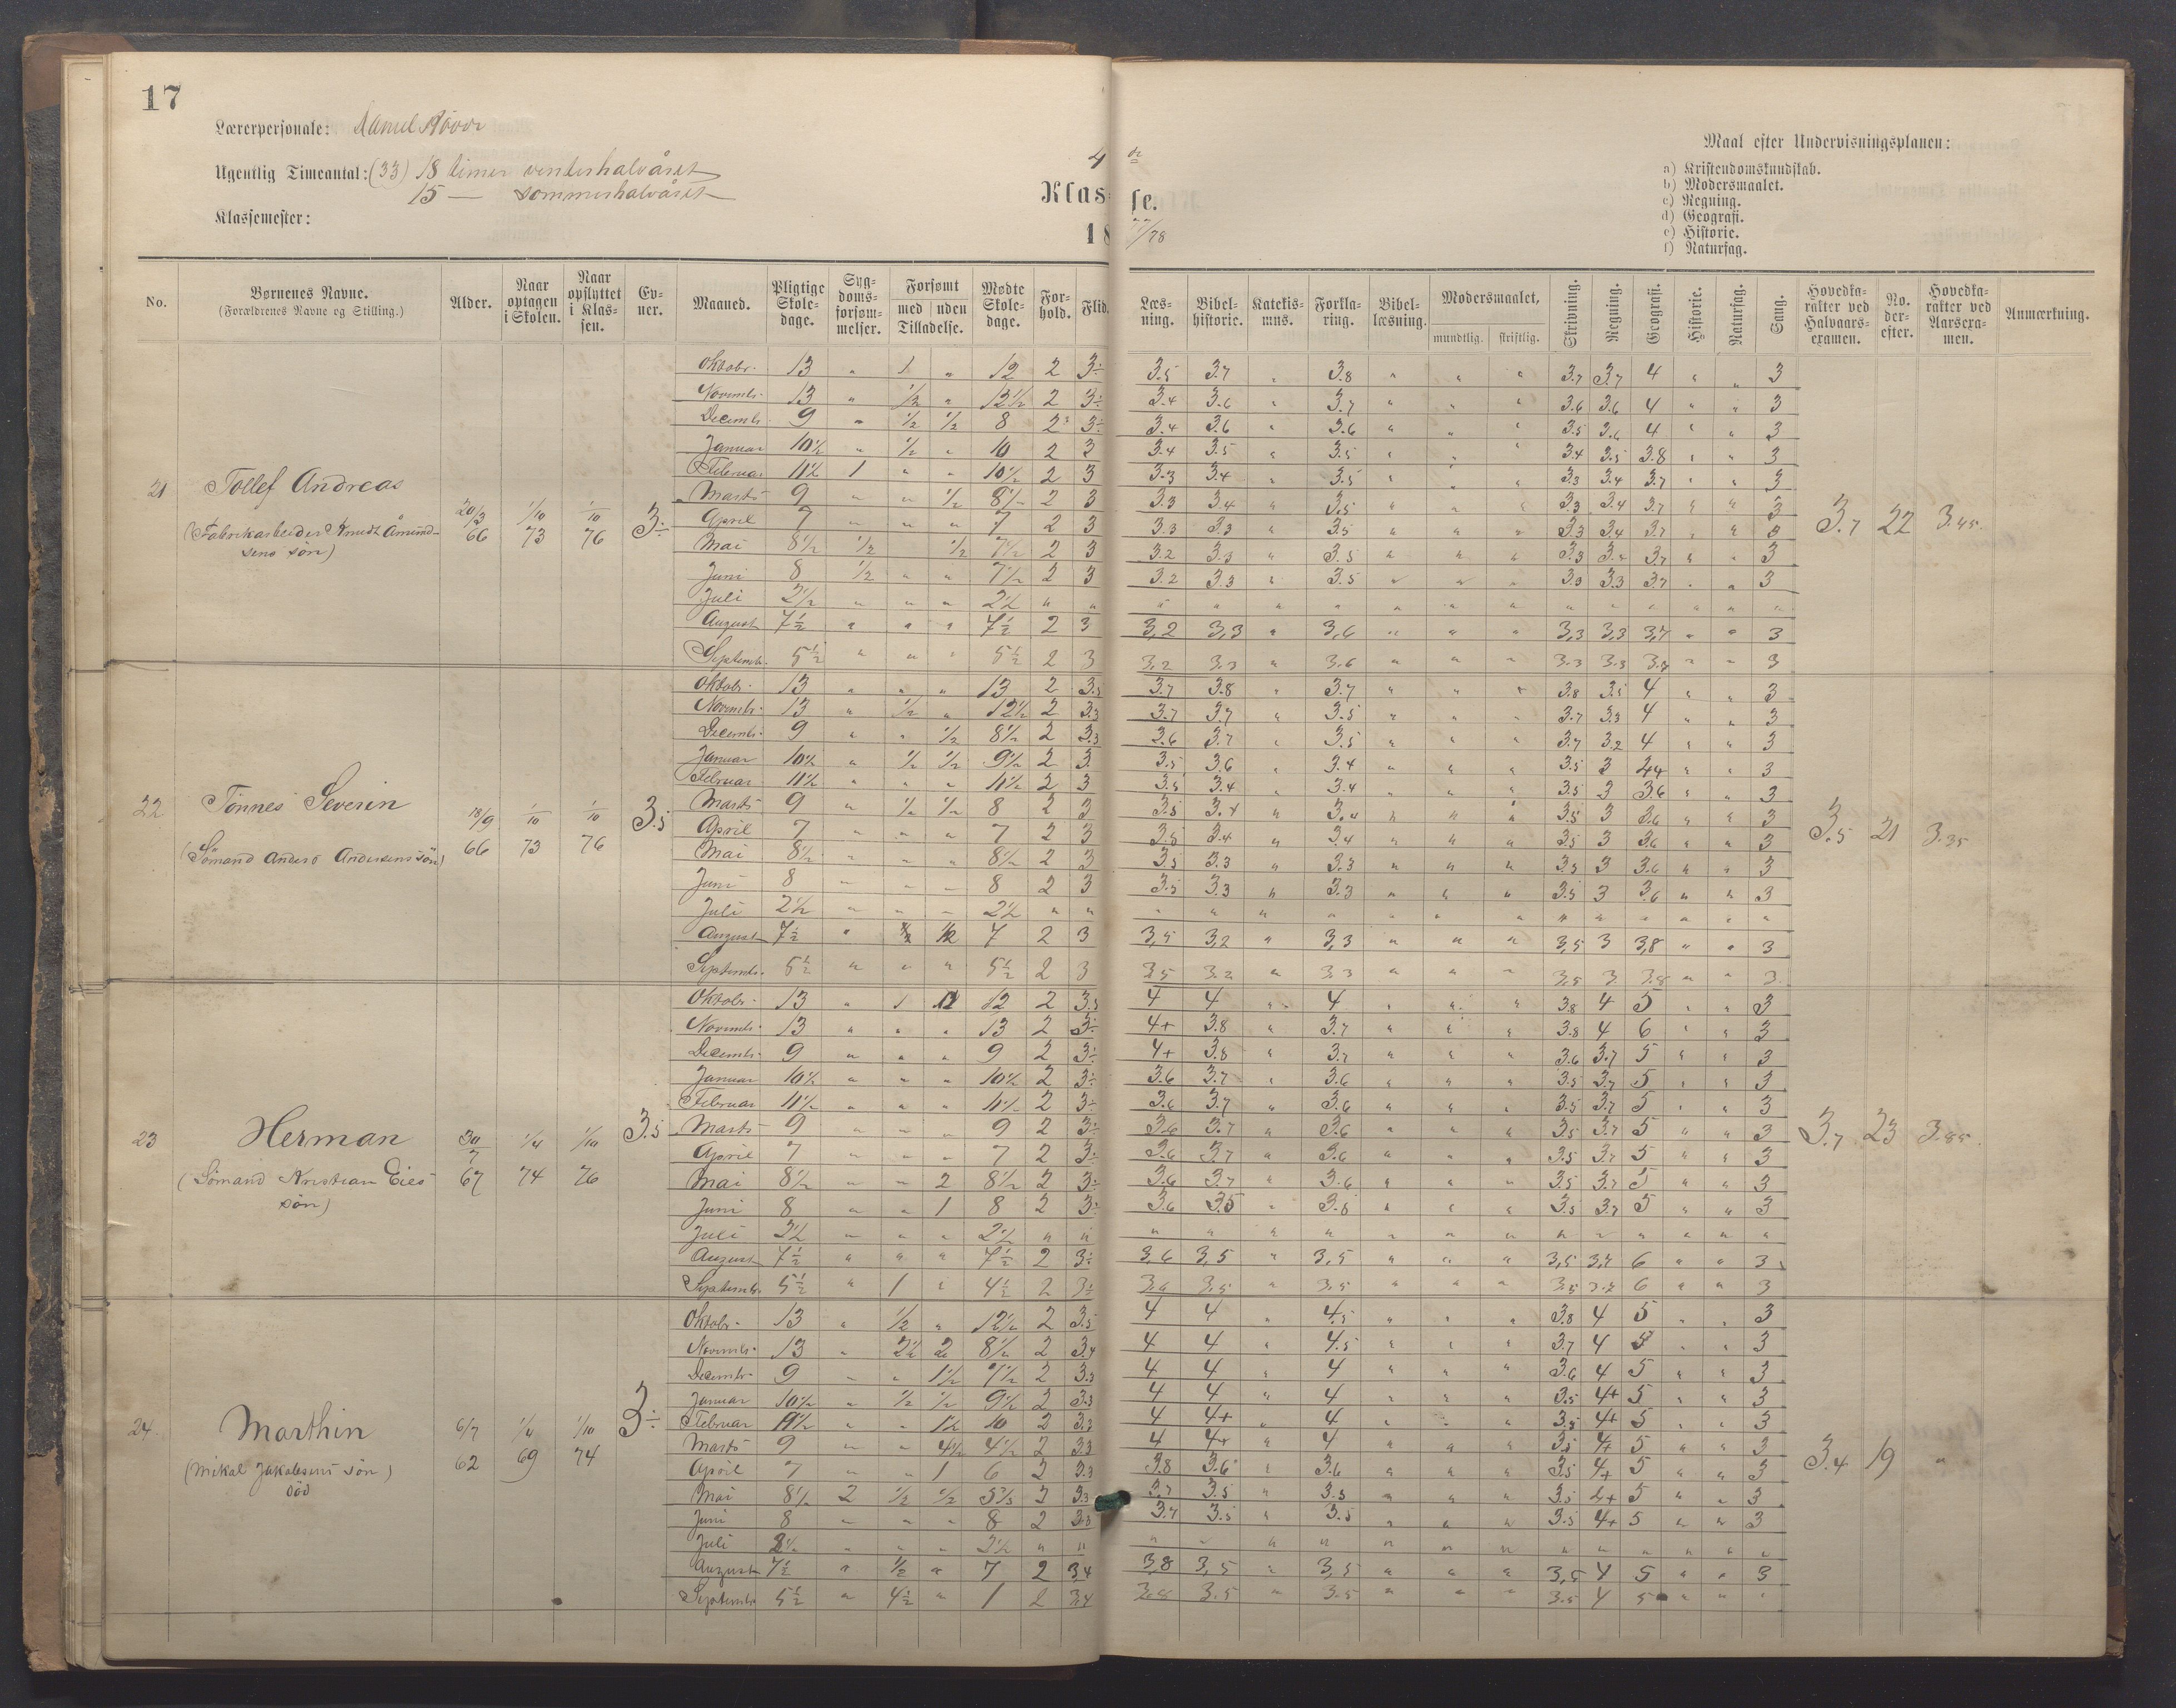 17
Lærerpersonale:
Ugentlig Timeantal: (33) 18 timer vinterhalvåret
15 — sommerhalvåret
Klassemester:
4de
Klasse.
18 77/78
Maal efter Undervisningsplanen:
a) Kristendomskundskab.
b) Modersmaalet.
c) Regning.
d) Geografi.
e) Historie.
f) Naturfag.
No. Børnenes Navne. (Forældrenes Navne og Stilling.) Alder. Naar optagen i Skolen. Naar opflyttet i Klassen. Evner. Maaned. Pligtige Skoledage. Sygdomsforsømmelser. Forsømt med uden Tilladelse. Mødte Skoledage. Forhold. Flid. Læsning. Bibelhistorie. Katekismus. Forklaring. Bibellæsning. Modersmaalet, mundtlig. skriftlig. Skrivning. Regning. Geografi. Historie. Naturfag. Sang. Hovedkarakter ved Halvaarsexamen. No. derefter. Hovedkarakter ved Aarsexamen. Anmærkning.
21 Tollef Andreas
(Fabrikarbeider Knudt Åmundsens søn)
20/3 66 1/10 73 1/10 76 3÷
Oktobr. 13 „ 1 „ 12 2 3÷ 3.5 3.7 „ 3.8 „ „ „ 3.7 3.7 4 „ „ 3
Novembr. 13 „ 1/2 „ 12 1/2 2 3÷ 3.4 3.6 „ 3.7 „ „ „ 3.6 3.6 4 „ „ 3
Decembr. 9 „ 1/2 1/2 8 2 3÷ 3.4 3.6 „ 3.6 „ „ „ 3.5 3.6 4 „ „ 3
Januar 10 1/2 „ 1/2 „ 10 2 3 3.4 3.5 „ 3.5 „ „ „ 3.4 3.5 3.8 „ „ 3
Februar 11 1/2 1 „ „ 10 1/2 2 3 3.3 3.4 „ 3.5 „ „ „ 3.3 3.4 3.7 „ „ 3
Marts 9 „ „ 1/2 8 1/2 2 3 3.3 3.4 „ 3.5 „ „ „ 3.3 3.4 3.7 „ „ 3
April 7 „ „ „ 7 2 3 3.3 3.3 „ 3.5 „ „ „ 3.3 3.4 3.7 „ „ 3
Mai 8 1/2 1/2 1/2 7 1/2 2 3 3.2 3.3 „ 3.5 „ „ „ 3.3 3.4 3.7 „ „ 3
Juni 8 1/2 „ „ 7 1/2 2 3 3.2 3.3 „ 3.5 „ „ „ 3.3 3.3 3.7 „ „ 3
Juli 2 1/2 „ „ „ 2 1/2 „ „
August 7 1/2 „ „ „ 7 1/2 2 3 3,2 3,3 „ 3,6 „ „ „ 3,3 3,3 3,7 „ „ 3
Septembr. 5 1/2 „ „ „ 5 1/2 2 3 3.2 3.3 „ 3.6 „ „ „ 3.3 3.3 3.7 „ „ 3
3.7 22 3.45.
22 Tønnes Severin
(Sømand Anders Andersens søn)
18/9 66 1/10 73 1/10 76 3.5
Oktobr. 13 „ „ „ 13 2 3.5 3.7 3.8 „ 3.7 „ „ „ 3.8 3.5 4 „ „ 3
Novembr. 13 „ 1/2 „ 12 1/2 2 3.3 3.7 3.7 „ 3.5 „ „ „ 3.7 3.3 4 „ „ 3
Decembr. 9 „ „ 1/2 8 1/2 2 3.3 3.6 3.7 „ 3.5 „ „ „ 3.7 3.2 4 „ „ 3
Januar 10 1/2 „ 1/2 1/2 9 1/2 2 3 3.5 3.6 „ 3.4 „ „ „ 3.5 3 „ „ 3
Februar 11 1/2 „ „ „ 11 1/2 2 3 3.5 3.4 „ 3.4 „ „ „ 3.5 3 3.6 „ „ 3
Marts 9 „ 1/2 1/2 8 2 3 3.5 3.4 „ 3.4 „ „ „ 3.5 3 3.6 „ „ 3
April 7 „ „ „ 7 2 3 3.5 3.4 „ 3.4 „ „ „ 3.5 3 3.6 „ „ 3
Mai 8 1/2 „ „ „ 8 1/2 2 3 3.5 3.3 „ 3.3 „ „ „ 3.5 3 3.6 „ „ 3
Juni 8 „ „ „ 8 2 3 3.5 3.3 „ 3.3 „ „ „ 3.5 3 3.6 „ „ 3
Juli 2 1/2 „ „ „ 2 1/2 „ „
August 7 1/2 „ 1/2 7 2 3 3,5 3,2 „ 3,3 „ „ „ 3,5 3 3,8 „ „ 3
Septembr. 5 1/2 „ „ „ 5 1/2 2 3 3.5 3.2 „ 3.3 „ „ „ 3.5 3 3.8 „ „ 3
3.5 21 3.35
23 Herman
(Sømand Kristian Eies søn)
30/7 67 1/4 74 1/10 76 3.5
Oktobr. 13 „ 1 12 2 3.5 4 4 „ 4 „ „ „ 3.8 4 5 „ „ 3
Novembr. 13 „ „ „ 13 2 3÷ 4+ 3.8 „ 3.7 „ „ „ 3.8 4 6 „ „ 3
Decembr. 9 „ „ „ 9 2 3÷ 4+ 3.8 „ 3.7 „ „ „ 3.6 3.7 5 „ „ 3
Januar 10 1/2 „ „ „ 10 1/2 2 3÷ 3.6 3.7 „ 3.6 „ „ „ 3.5 3.7 5 „ „ 3
Februar 11 1/2 „ „ „ 11 1/2 2 3÷ 3.6 3.7 „ 3.6 „ „ „ 3.5 3.7 5 „ „ 3
Marts 9 „ „ „ 9 2 3÷ 3.6 3.7 „ 3.6 „ „ „ 3.5 3.7 5 „ „ 3
April 7 „ „ „ 7 2 3÷ 3.6 3.7 „ 3.6 „ „ „ 3.5 3.7 5 „ „ 3
Mai 8 1/2 „ „ 2 8 1/2 2 3÷ 3.6 3.7 „ 3.6 „ „ „ 3.5 3.7 5 „ „ 3
Juni 8 „ „ 1 8 2 3÷ 3.6 3.5 „ „ „ „ 3.5 3.7 5 „ „ 3
Juli 2 1/2 „ „ „ 2 1/2 „ „
August 7 1/2 „ „ „ 7 1/2 2 3÷ 3,6 3,5 „ 3,5 „ „ „ 3,5 3,7 6 „ „ 3
Septembr. 5 1/2 „ 1 „ 4 1/2 2 3÷ 3.6 3.5 „ 3.5 „ „ „ 3.5 3.7 6 „ „ 3
3.7 23 3.85.
24. Marthin
(Mikal Jakobsens søn)
død
6/7 62 1/4 69 1/10 74 3÷
Oktobr. 13 „ 1/2 „ 12 1/2 2 3.5 4 4 „ 4.5 „ „ „ 3.8 4 5 „ „ 3
Novembr. 13 „ 2 1/2 2 8 1/2 2 3.4 4 4 „ 4.5 „ „ „ 3.7 4 5 „ „ 3
Decembr. 9 „ „ 1 1/2 7 1/2 2 3.3 4 4 „ 4 „ „ „ 3.6 4 5 „ „ 3
Januar 10 1/2 „ 1/2 1/2 9 1/2 2 3.3 4 4 „ 4 „ „ „ 3.5 4+ 5 „ „ 3
Februar 11 1/2 „ „ 1 1/2 10 2 3.3 4 4+ „ 4 „ „ „ 3.5 4+ 5 „ „ 3
Marts 9 „ „ 4 1/2 4 1/2 2 3.3 4 4+ „ 4 „ „ „ 3.5 4+ 5 „ „ 3
April 7 „ „ 1 6 2 3.3 3.8 3.6 „ 3.6 „ „ „ 3.5 4+ 5 „ „ 3
Mai 8 1/2 2 1/2 1/2 2 3.3 3.7 3.5 „ 3.5 „ „ „ 3.5 4+ 5 „ „ 3
Juni 8 „ „ „ 8 2 3.3 3.7 3.5 „ 3.5 „ „ „ 3.5 4+ 5 „ „ 3
Juli 2 1/2 „ „ „ 2 1/2 „ „
August 7 1/2 „ 1/2 „ 7 2 3.4 3,8 3,5 „ 3,5 „ „ „ 3,5 4 5 „ „ 3
Septembr. 5 1/2 „ 4 1/2 „ 1 2 3.4 3.8 3.5 „ 3.5 „ „ „ 3.5 4 5 „ „ „
3.4 19 „